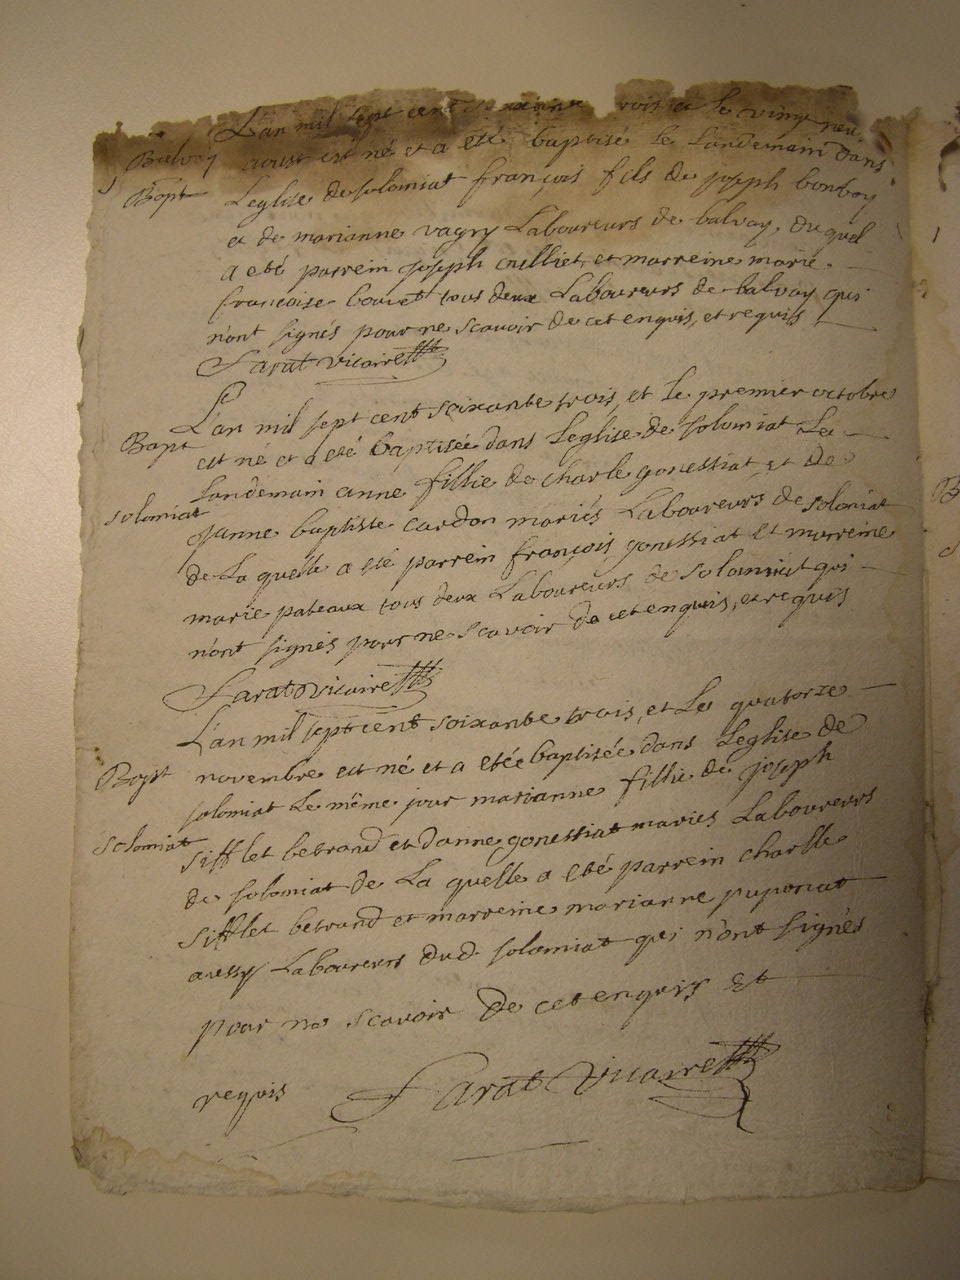 L'an mil sept cent soixante trois et le vingt neu
Balvay aoust est né et a eté baptisé le Landemain dans
Bapt Leglise de solomiat françois fils de joseph bonboy
et de marianne vagry Laboureurs de balvay, duquel
a eté parrein joseph cuilliet, et marreine marie
francoise bouvet tous deux Laboureurs de balvay qui
n'ont signés pour ne scavoir de cet enquis, et requis
Sarat vicaire
L'an mil sept cent soixante trois, et le premier octobre
Bapt est né et a eté baptisée dans Leglise de solomiat Le
Landemain anne fillie de charle gonessiat et de
solomiat janne baptiste cardon mariés Laboureurs de soloniat
de La quelle a eté parrein françois gonessiat et marreine
marie pateaux tous deux Laboureurs de solomiat qui
n'ont signés pour ne scavoir de cet enquis, et requis
Sarat vicaire
L'an mil sept cent soixante trois, et Le quatorze
Bapt novembre est né et a etée baptisée dans Leglise de
solomiat Le même jour marianne fillie de joseph
solomiat sifflet betrand et danne gonessiat mariés Laboureurs
de solomiat de La quelle a eté parrein charlle
sifflet betrand et marreine marianne puponat
aussy Laboureurs dud. solomiat qui n'ont signés
pour ne scavoir de cet enquis et
requis Sarat Vicaire